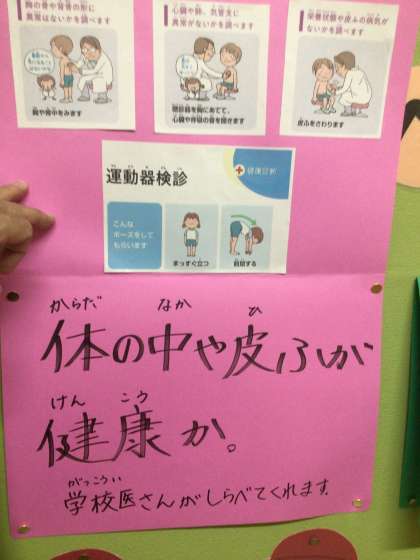 胸の骨や背骨の形に
異常はないかを調べます
胸や背中をみます
心臓や肺、気管支に
異常がないかを調べます
聴診器を胸にあてて、
心臓や呼吸の音を聴きます
栄養状態や皮ふの病気が
ないかを調べます
皮ふをさわります
運動器検診
健康診断
こんな
ポーズをして
もらいます
まっすぐ立つ
前屈する
からだ なか ひ
体の中や皮ふが
けん こう
健康か。
がっこうい
学校医さんがしらべてくれます。